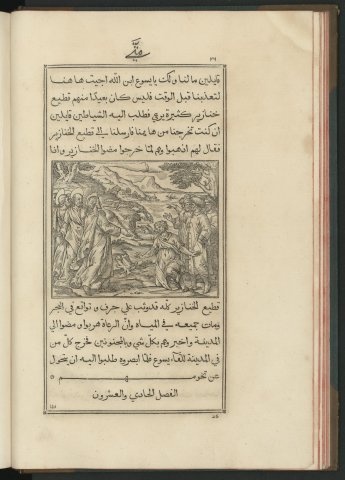 ٢٦
متي
قايلين ما لنا ولك يا يسوع ابن الله اجيت ها هنا
لتعذبنا قبل الوقت فليس كان بعيدًا منهم قطيع
خنازير كثيرة يرعي فطلب اليه الشياطين قايلين
ان كنت تخرجنا من هاهنا فارسلنا الي قطيع الخنازير
فقال لهم اذهبوا وهم لما خرجوا مضوا الخنازير واذا
قطيع الخنازير كله قد وثب علي جرف وتواقع في البحر
ومات جميعه في المياه وان الرعاة هربوا ومضوا الي
المدينة واخبروهم بكل شي وبالمجنونين فخرج كل من
في المدينة للقاء يسوع فلما ابصروه طلبوا اليه ان يتحول
عن تخومهم
الفصل الحادي والعشرون
26